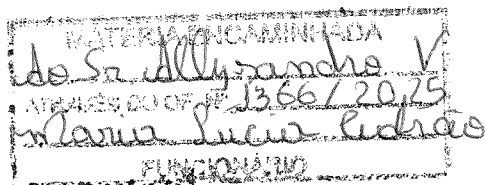 MATÉRIA ENCAMINHADA
do Sr. Allysandro V
ATRAVÉS DO OF. Nº 1366/2025
Maria Lucia
FUNCIONÁRIO